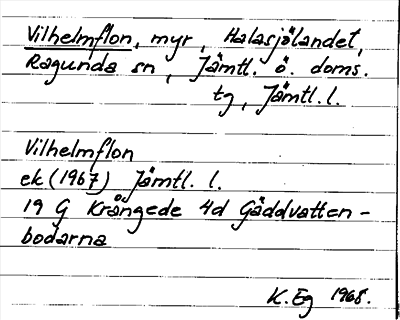 Vilhelmflon, myr, Halasjölandet,
Ragunda sn, Jämtl. ö. doms.
tg, Jämtl. l.
Vilhelmflon
ek (1967) Jämtl. l.
19 G Krångede 4d Gäddvatten-
bodarna
K. Eg 1968.